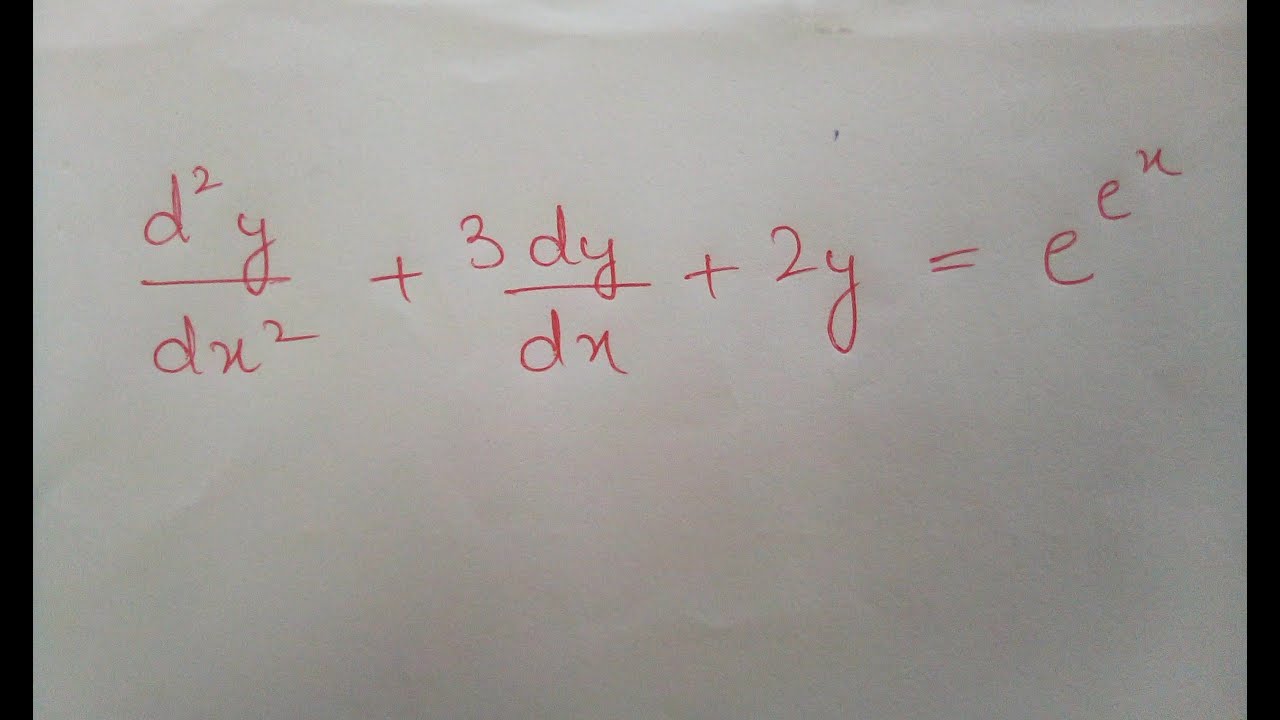 d²y/dx² + 3 dy/dx + 2y = e^{e^x}